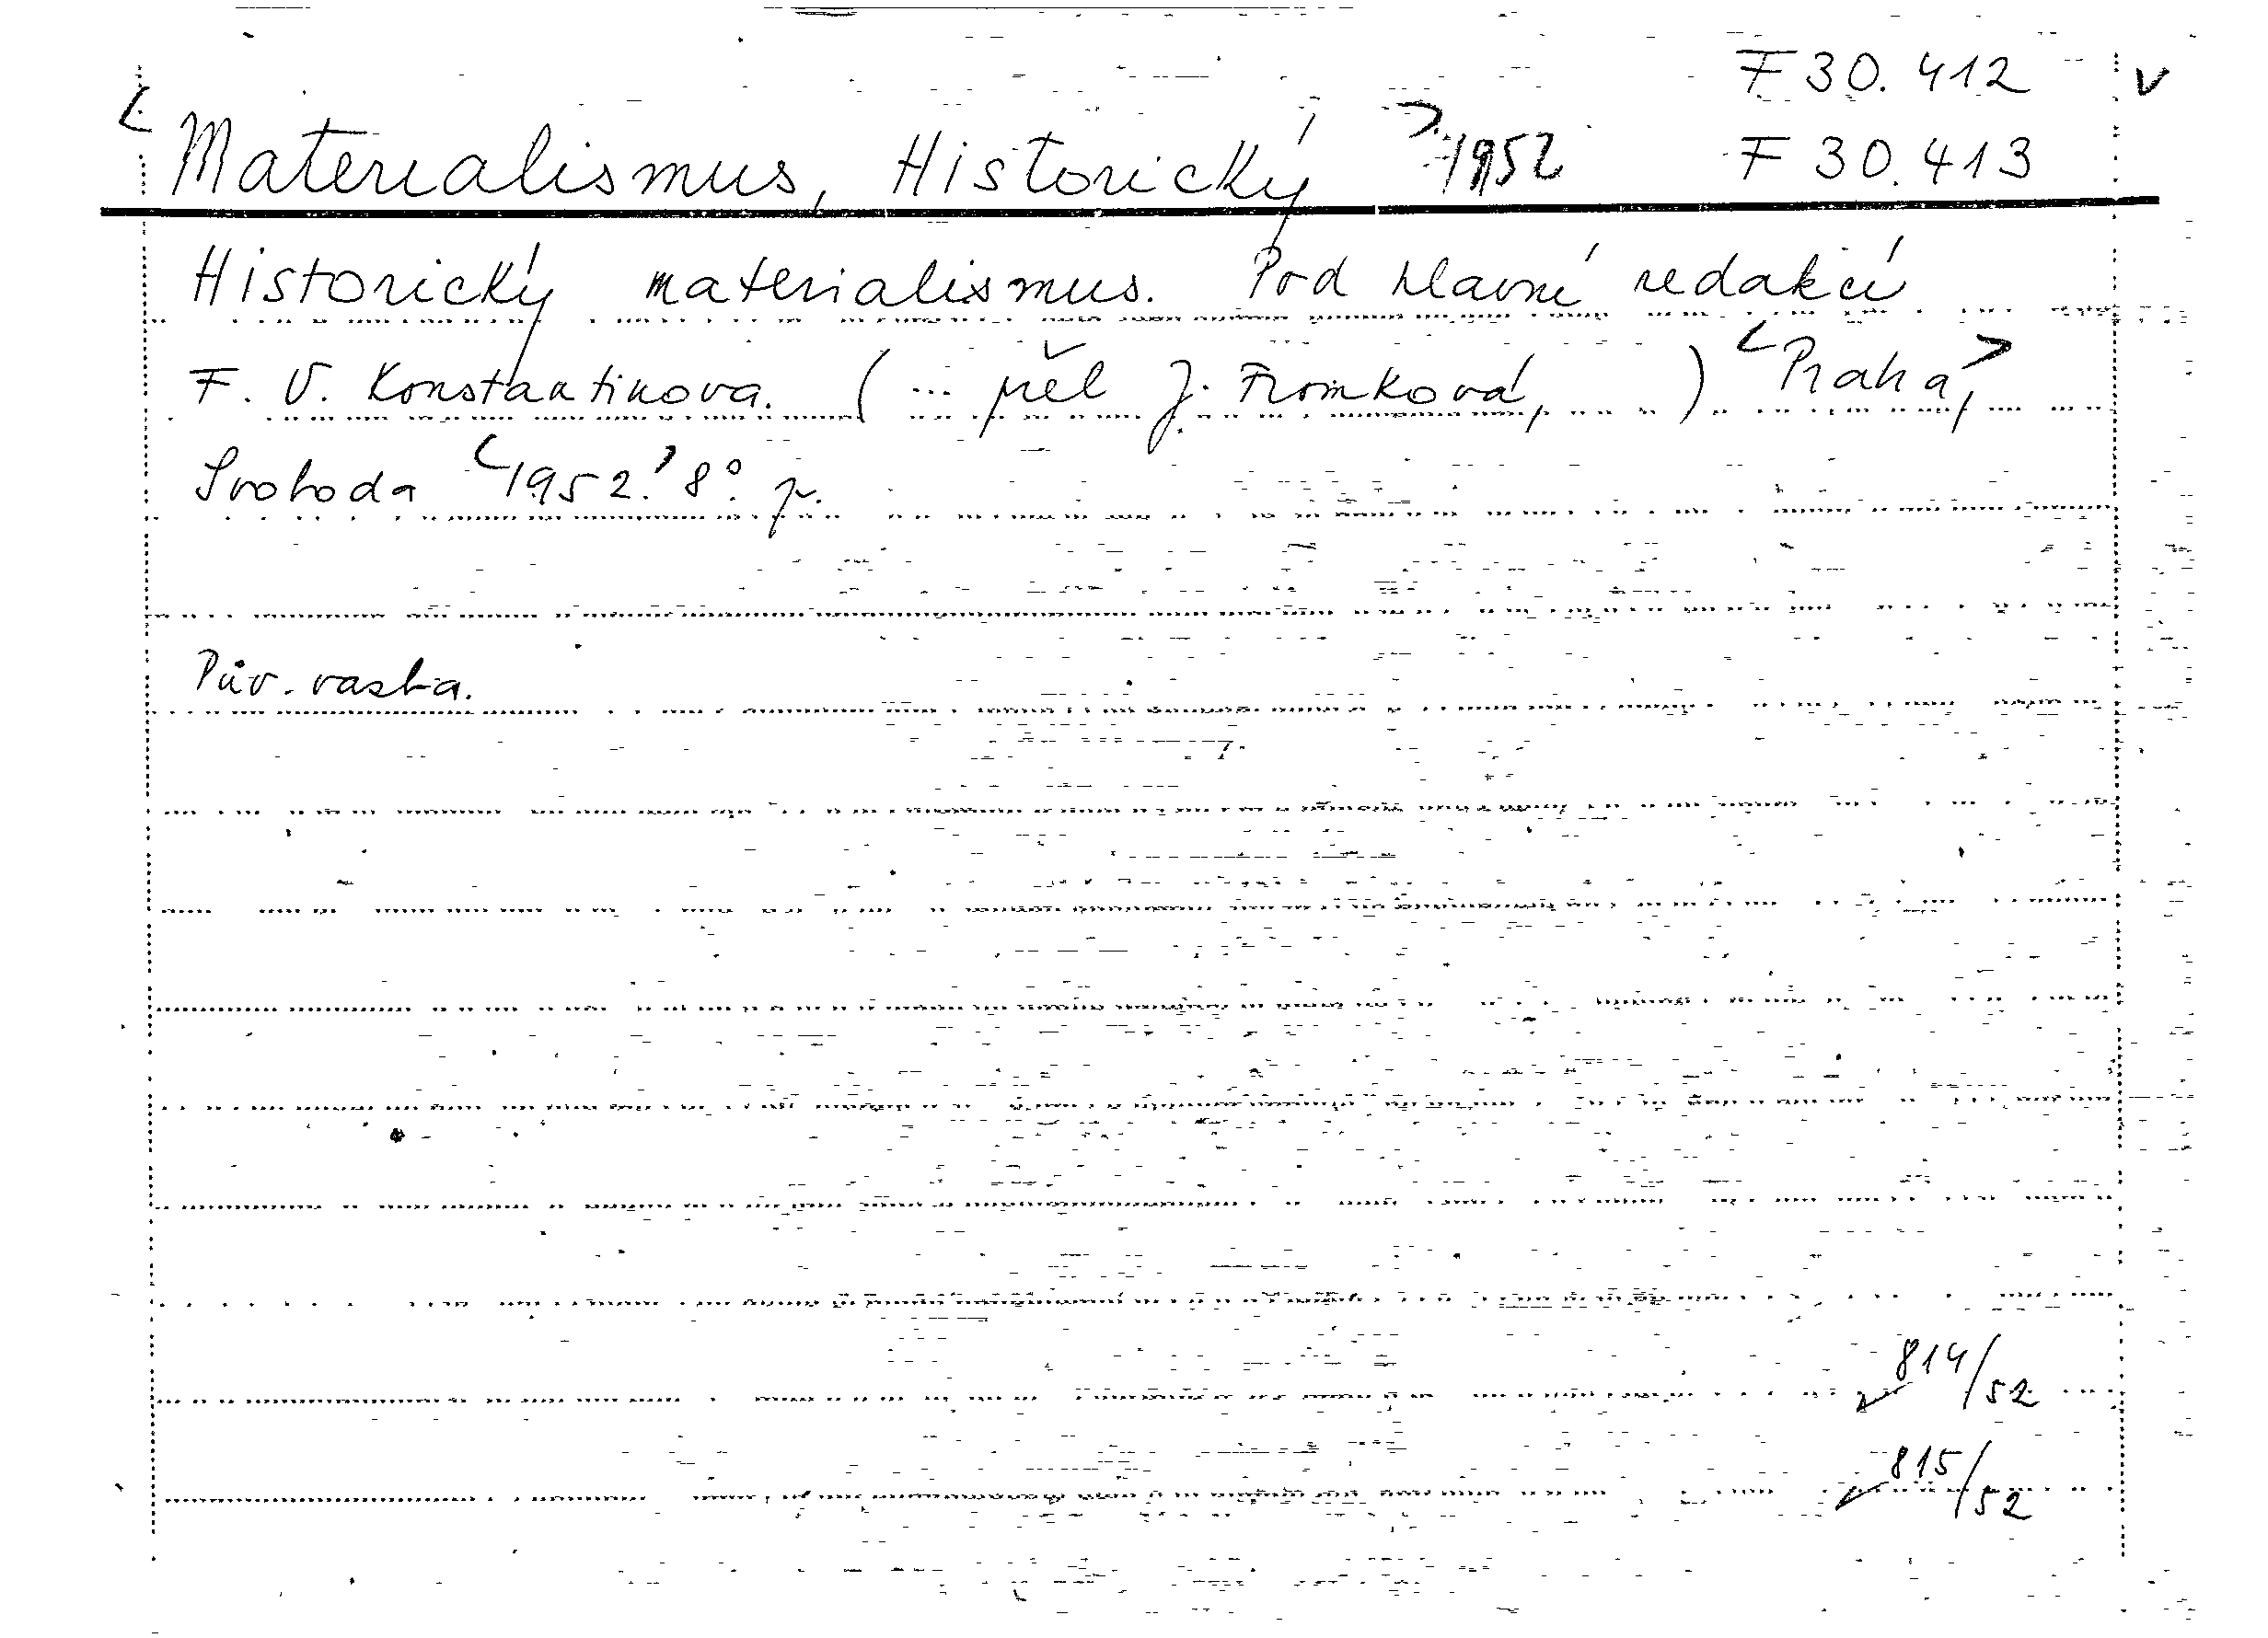 F 30.412 v
<Materialismus, Historický> 1952 F 30.413
Historický materialismus. Pod hlavní redakcí
F. V. Konstantinova. (... přel J. Fromková, ...) <Praha,>
Svoboda <1952.> 8°. p.
Pův. vazba.
814/52
815/52